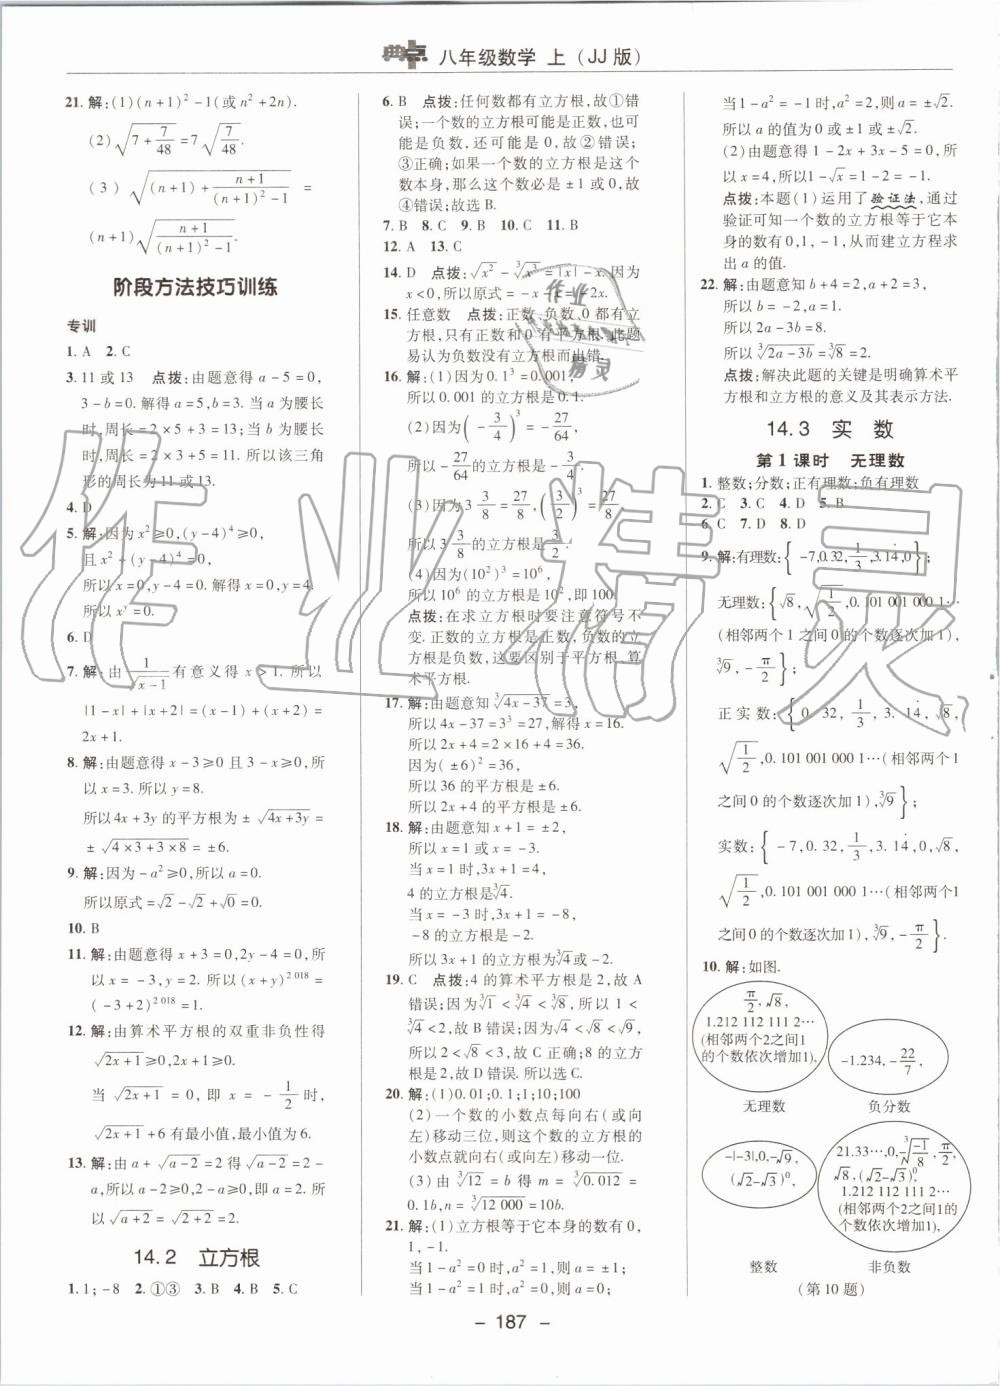 典点 八年级数学 上（JJ版）
21. 解:(1)(n+1)²-1(或n²+2n).
(2)√(7+7/48)=7√(7/48).
(3)√((n+1)+(n+1)/((n+1)²-1))=
(n+1)√((n+1)/((n+1)²-1)).
阶段方法技巧训练
专训
1. A 2. C
3. 11或13 点拨:由题意得a-5=0,
3-b=0. 解得a=5,b=3. 当a为腰长
时,周长=2×5+3=13;当b为腰长
时,周长=2×3+5=11. 所以该三角
形的周长为11或13.
4. D
5. 解:因为x²≥0,(y-4)⁴≥0,
且x²+(y-4)⁴=0,
所以x=0,y-4=0. 解得x=0,y=4.
所以xʸ=0.
6. D
7. 解:由1/√(x-1)有意义得x>1. 所以
|1-x|+|x+2|=(x-1)+(x+2)=
2x+1.
8. 解:由题意得x-3≥0且3-x≥0,所
以x=3. 所以y=8.
所以4x+3y的平方根为±√(4x+3y)=
±√(4×3+3×8)=±6.
9. 解:因为-a²≥0,所以a=0.
所以原式=√2-√2+√0=0.
10. B
11. 解:由题意得x+3=0,2y-4=0. 所
以x=-3,y=2. 所以(x+y)²⁰¹⁸=
(-3+2)²⁰¹⁸=1.
12. 解:由算术平方根的双重非负性得
√(2x+1)≥0,2x+1≥0.
当√(2x+1)=0,即x=-1/2时,
√(2x+1)+6有最小值,最小值为6.
13. 解:由a+√(a-2)=2得√(a-2)=2-
a,所以a-2≥0,2-a≥0,所以a=2. 所
以√(a+2)=√(2+2)=2.
14.2 立方根
1. 1;-8 2. ①③ 3. B 4. B 5. C
6. B 点拨:任何数都有立方根,故①错
误;一个数的立方根可能是正数,也可
能是负数,还可能是0,故②错误;
③正确;如果一个数的立方根是这个
数本身,那么这个数必是±1或0,故
④错误;故选B.
7. B 8. C 9. B 10. C 11. B
12. A 13. C
14. D 点拨:√x²-∛x³=|x|-x. 因为
x<0,所以原式=-x-x=-2x.
15. 任意数 点拨:正数、负数、0都有立
方根,只有正数和0有平方根,此题
易认为负数没有立方根而出错.
16. 解:(1)因为0.1³=0.001,
所以0.001的立方根是0.1.
(2)因为(-3/4)³=-27/64,
所以-27/64的立方根是-3/4.
(3)因为3 3/8=27/8,(3/2)³=27/8,
所以3 3/8的立方根是3/2.
(4)因为(10²)³=10⁶,
所以10⁶的立方根是10²,即100.
点拨:在求立方根时要注意符号不
变. 正数的立方根是正数,负数的立
方根是负数,这要区别于平方根、算
术平方根.
17. 解:由题意得∛(4x-37)=3,
所以4x-37=3³=27,解得x=16.
所以2x+4=2×16+4=36.
因为(±6)²=36,
所以36的平方根是±6.
所以2x+4的平方根是±6.
18. 解:由题意知x+1=±2,
所以x=1或x=-3.
当x=1时,3x+1=4,
4的立方根是∛4.
当x=-3时,3x+1=-8,
-8的立方根是-2.
所以3x+1的立方根为∛4或-2.
19. C 点拨:4的算术平方根是2,故A
错误;因为∛1<∛4<∛8,所以1<
∛4<2,故B错误;因为√4<√8<√9,
所以2<√8<3,故C正确;8的立方
根是2,故D错误. 所以选C.
20. 解:(1)0.01;0.1;1;10;100
(2)一个数的小数点每向右(或向
左)移动三位,则这个数的立方根的
小数点就向右(或向左)移动一位.
(3)由∛12=b得m=∛0.012=
0.1b,n=∛12 000=10b.
21. 解:(1)立方根等于它本身的数有0,
1,-1.
当1-a²=0时,a²=1,则a=±1;
当1-a²=1时,a²=0,则a=0;
当1-a²=-1时,a²=2,则a=±√2.
所以a的值为0或±1或±√2.
(2)由题意得1-2x+3x-5=0,所
以x=4,所以1-√x=1-2=-1.
点拨:本题(1)运用了验证法,通过
验证可知一个数的立方根等于它本
身的数有0,1,-1,从而建立方程求
出a的值.
22. 解:由题意知b+4=2,a+2=3,
所以b=-2,a=1.
所以2a-3b=8.
所以∛(2a-3b)=∛8=2.
点拨:解决此题的关键是明确算术平
方根和立方根的意义及其表示方法.
14.3 实 数
第1课时 无理数
1. 整数;分数;正有理数;负有理数
2. C 3. C 4. D 5. B
6. C 7. D 8. D
9. 解:有理数:{-7,0.32,1/3,3.14,0};
无理数:{√8,√(1/2),0.101 001 000 1…
(相邻两个1之间0的个数逐次加1),
∛9,-π/2};
正实数:{0.32,1/3,3.14,√8,
√(1/2),0.101 001 000 1…(相邻两个1
之间0的个数逐次加1),∛9};
实数:{-7,0.32,1/3,3.14,0,√8,
√(1/2),0.101 001 000 1…(相邻两个1
之间0的个数逐次加1),∛9,-π/2}.
10. 解:如图.
π/2,√8,
1.212 112 111 2…
(相邻两个2之间1
的个数依次增加1),
无理数
-1.234,-22/7,
负分数
-|-3|,0,-√9,
(√2-√3)⁰,
整数
21.33…,0,∛(-1/8),π/2,
√8,(√2-√3)⁰,
1.212 112 111 2…
(相邻两个2之间1的
个数依次增加1),
非负数
(第10题)
- 187 -
作业精灵
作业
精灵